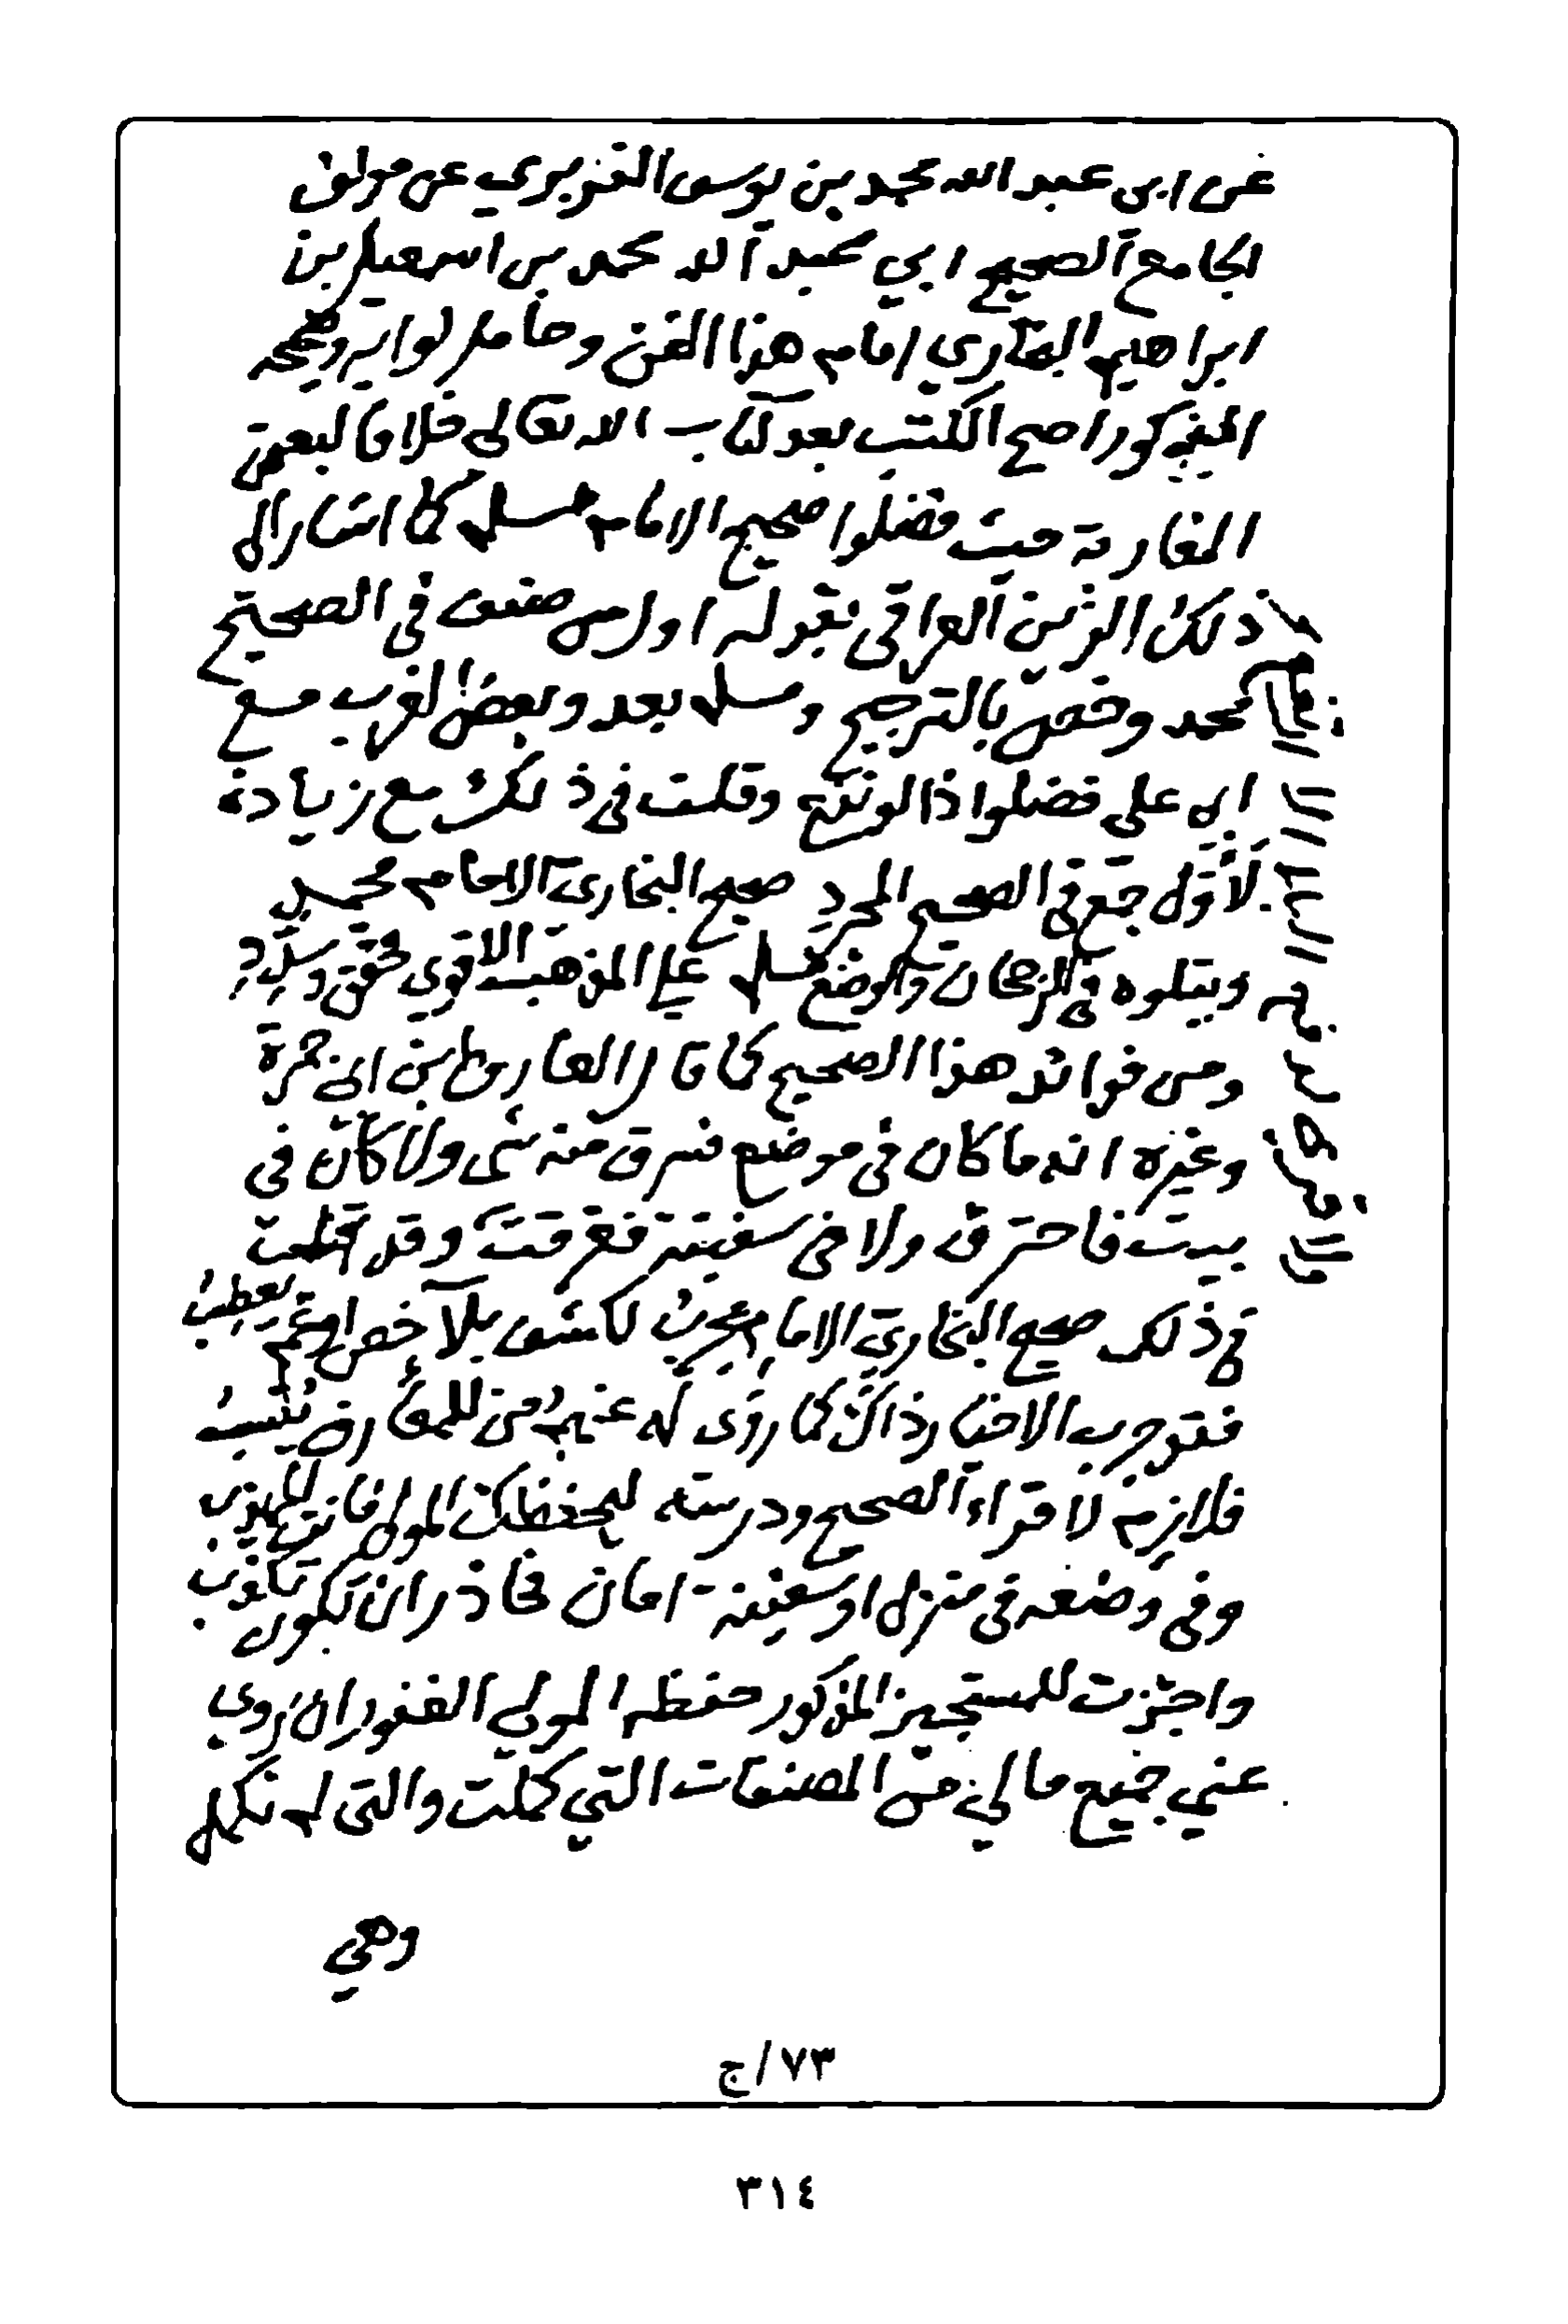 عن ابى عبد الله محمد بن يوسف الفربري عن مولف
الجامع الصحيح ابي عبد الله محمد بن اسمعيل بن
ابراهيم البخاري امام هذا الفن وحامل لوايه وصحيحه
المذكور اصح الكتب بعد كتاب الله تعالى خلافا لبعض
المغاربة حيث فضلوا صحيح الامام مسلم كما اشار الى
ذلك الزين العراقي بقوله اول من صنف في الصحيح
محمد وخص بالترجيح ومسلم بعد وبعض الغرب مع
ابى على فضلوا ذا لو نفع وقلت في ذلك مع زيادة
لأول جمع في الصحيح المجرد صحيح البخاري الامام محمد
ويتلوه في الرجحان والوضع مسلم على المذهب الاقوى فحقق وسدد
ومن فوائد هذا الصحيح كما قال العارف بن ابي جمرة
وغيره انه ما كان في موضع فسرق منه شى ولا كان في
بيت فاحترق ولا في سفينة فغرقت وقد قلت
في ذلك صحيح البخاري الامام مجرب لكشف بلاء خص او عم
فتوجب الاخيار ذاك كما روى له عنهم من للمعارض
فلازم لاقراء الصحيح ودرسه ليحفظك المولى
وفي وضعه في منزل او سفينة امان فحاذر ان تكون
واجزت للمستجيز المذكور حفظه المولي الغفور ان يروى
عني جميع ما لي من المصنفات التي كملت والتى لم تكمل
وهي
٧٣/ج
٣١٤